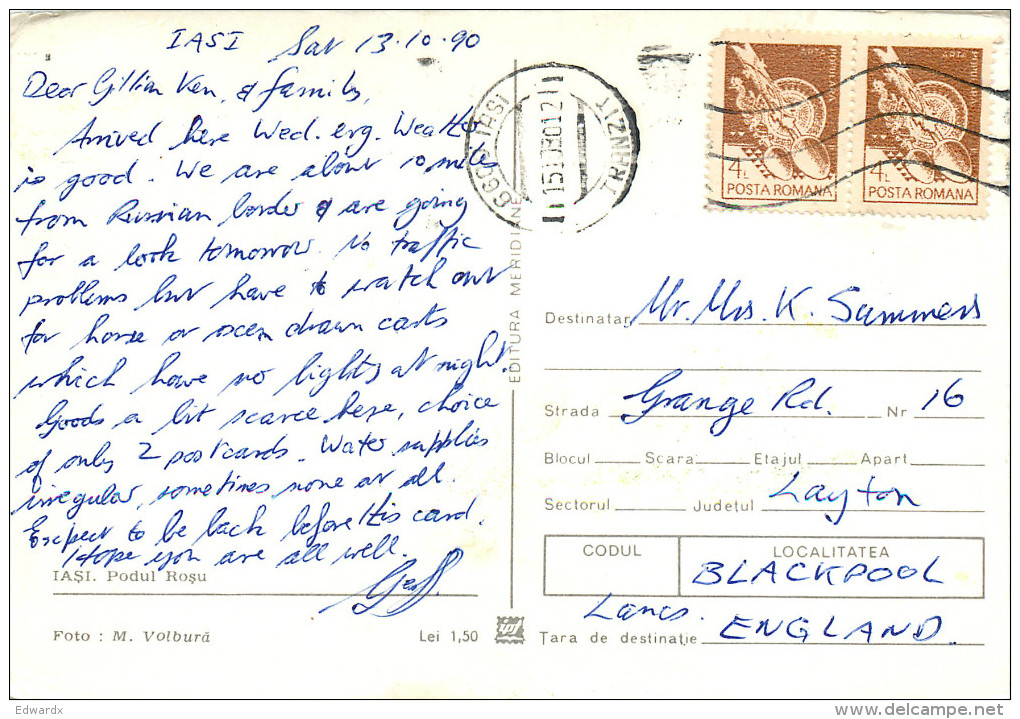 IASI Sat 13.10.90
Dear Gillian Ken, & family,
Arrived here Wed. evg. Weather
is good. We are about 10 miles
from Russian border & are going
for a look tomorrow. No traffic
problems but have to watch out
for horse or oxen drawn carts
which have no lights at night.
Goods a bit scarce here, choice
of only 2 postcards. Water supplies
irregular, sometimes none at all.
Expect to be back before this card.
Hope you are all well.
IAȘI. Podul Roșu
Foto : M. Volbură
Lei 1,50
EDITURA MERIDIANE
IASI
TRANZIT
15.10.90 12
4L
POSTA ROMANA
4L
POSTA ROMANA
Destinatar Mr. Mrs. K. Summers
Strada Grange Rd. Nr 16
Blocul Scara Etajul Apart.
Sectorul Județul Layton
CODUL LOCALITATEA
BLACKPOOL
Lancs.
Țara de destinație ENGLAND
Edwardx
www.delcampe.net